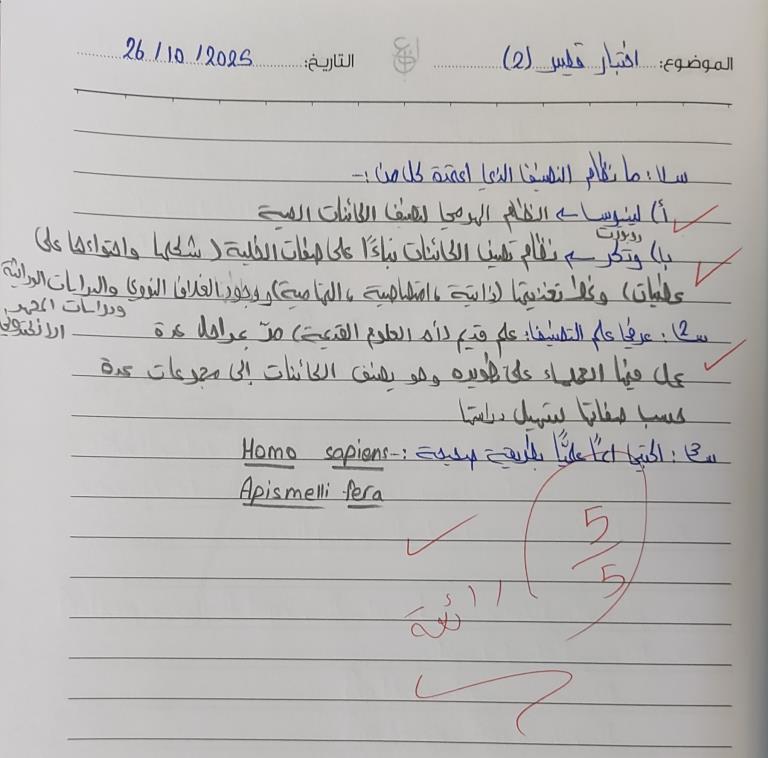 الموضوع: اختبار قصير (2) التاريخ: 26/10/2025
س1: ما نظام التصنيف الذي اعتمده كل من :-
أ) لينوس ← النظام الهرمي لتصنيف الكائنات الحية
روبرت
ب) وتكر ← نظام تصنيف الكائنات بناءًا على صفات الخلية (شكلها واحتواءها على
عضيات) ونمط تغذيتها (ذاتية، امتصاصية، التهامية) ووجود الغلاف النووي والدراسات الوراثية
ودراسات المجهر
الالكتروني
س2: عرفي علم التصنيف: علم قديم (أم العلوم القديمة) مرّ بمراحل عدة
عمل فيها العلماء على تطويره وهو يصنف الكائنات إلى مجموعات عدة
حسب صفاتها لتسهيل دراستها
س3: اكتبي اسمًا علميًّا بطريقة صحيحة :- Homo sapiens
Apismelli fera
5
5
رائعة